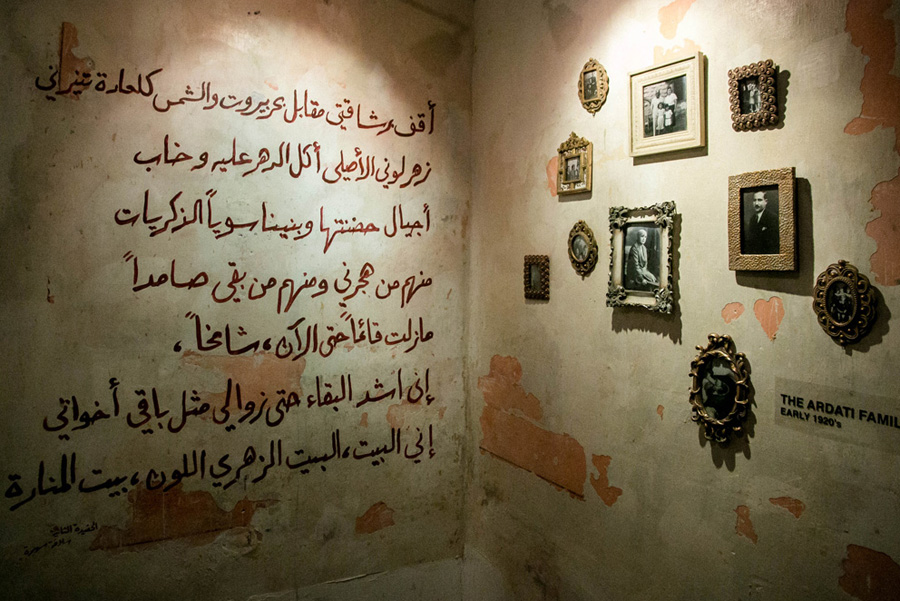 أقف برشاقتي مقابل بيروت والشمس كالعادة تنيراني
زهر لوني الأصلي أكل الدهر عليه و خاب
أجيال حضنتها وبنينا سوياً الذكريات
منهم من هجرني ومنهم من بقى صامداً
مازلت قائماً حتى الآن، شامخاً،
إني اشد البقاء حتى زوالي مثل باقي أخواتي
إني البيت، البيت الزهري اللون، بيت المنارة
THE ARDATI FAMIL
EARLY 1920's